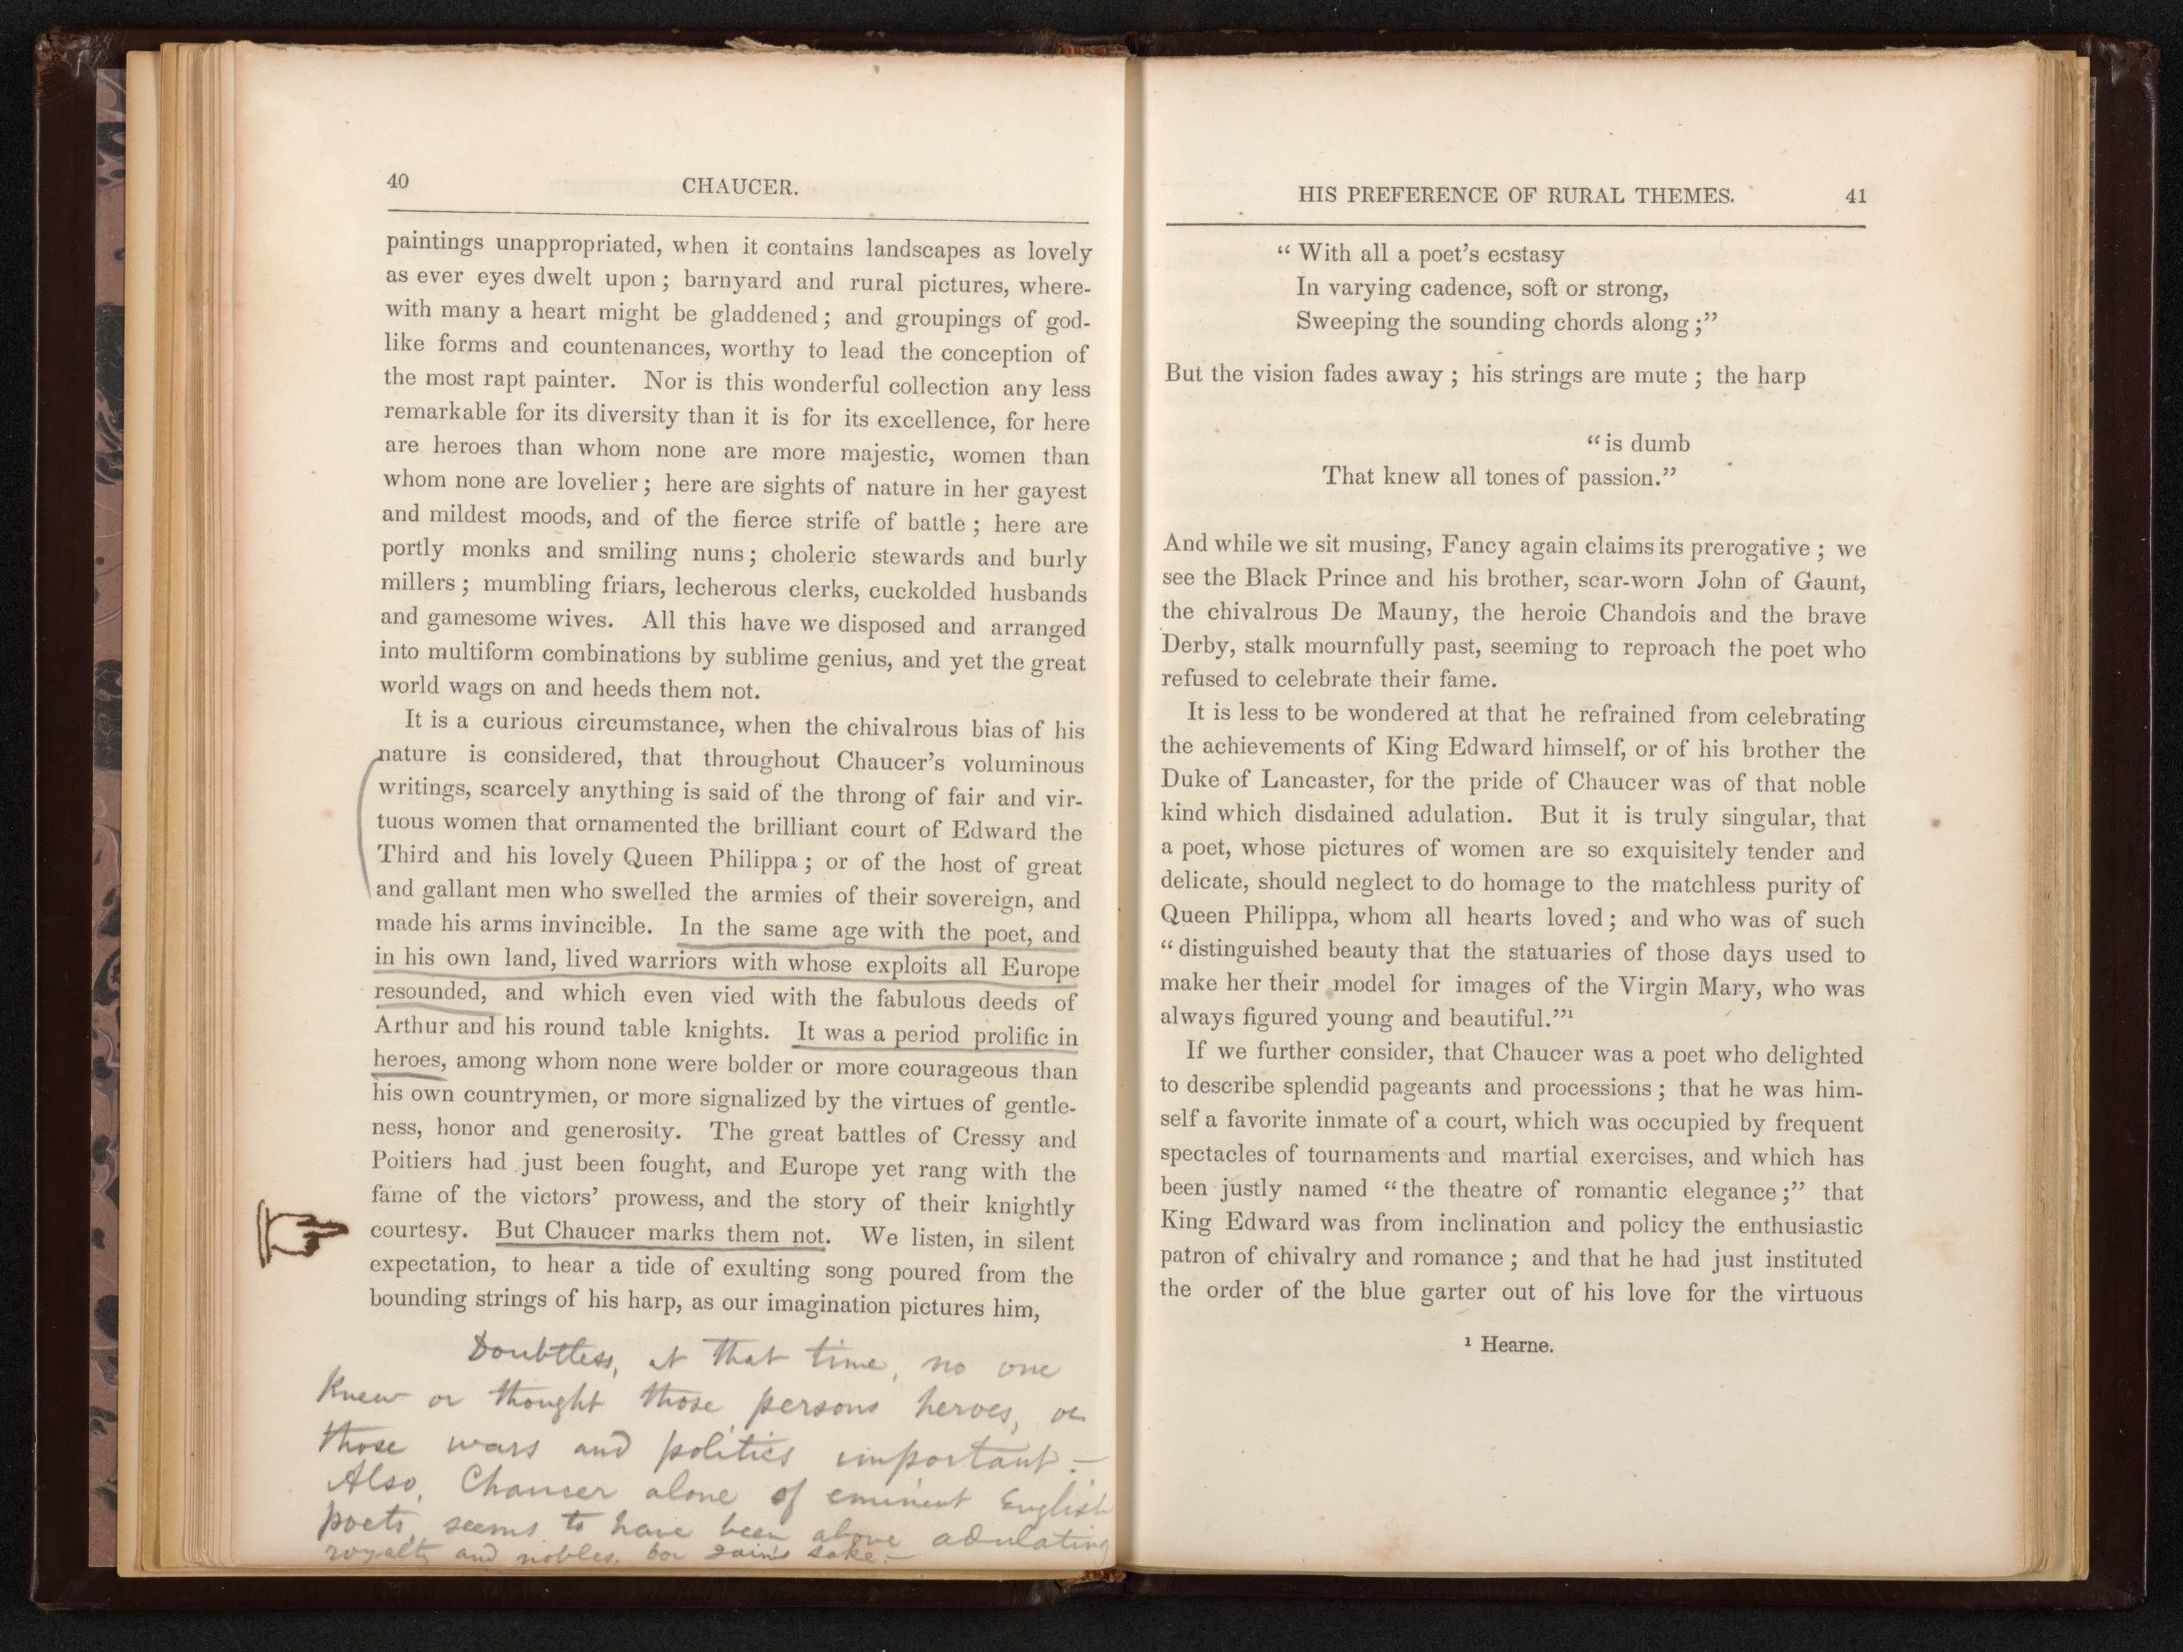 40
CHAUCER.
paintings unappropriated, when it contains landscapes as lovely
as ever eyes dwelt upon; barnyard and rural pictures, where-
with many a heart might be gladdened; and groupings of god-
like forms and countenances, worthy to lead the conception of
the most rapt painter. Nor is this wonderful collection any less
remarkable for its diversity than it is for its excellence, for here
are heroes than whom none are more majestic, women than
whom none are lovelier; here are sights of nature in her gayest
and mildest moods, and of the fierce strife of battle; here are
portly monks and smiling nuns; choleric stewards and burly
millers; mumbling friars, lecherous clerks, cuckolded husbands
and gamesome wives. All this have we disposed and arranged
into multiform combinations by sublime genius, and yet the great
world wags on and heeds them not.
It is a curious circumstance, when the chivalrous bias of his
nature is considered, that throughout Chaucer's voluminous
writings, scarcely anything is said of the throng of fair and vir-
tuous women that ornamented the brilliant court of Edward the
Third and his lovely Queen Philippa; or of the host of great
and gallant men who swelled the armies of their sovereign, and
made his arms invincible. In the same age with the poet, and
in his own land, lived warriors with whose exploits all Europe
resounded, and which even vied with the fabulous deeds of
Arthur and his round table knights. It was a period prolific in
heroes, among whom none were bolder or more courageous than
his own countrymen, or more signalized by the virtues of gentle-
ness, honor and generosity. The great battles of Cressy and
Poitiers had just been fought, and Europe yet rang with the
fame of the victors' prowess, and the story of their knightly
courtesy. But Chaucer marks them not. We listen, in silent
expectation, to hear a tide of exulting song poured from the
bounding strings of his harp, as our imagination pictures him,
Doubtless, at that time, no one
knew or thought those persons heroes, or
those wars and politics important.—
Also, Chaucer alone of eminent English
poets, seems to have been above adulating
royalty and nobles, for gain's sake.—
HIS PREFERENCE OF RURAL THEMES.
41
"With all a poet's ecstasy
In varying cadence, soft or strong,
Sweeping the sounding chords along;"
But the vision fades away; his strings are mute; the harp
"is dumb
That knew all tones of passion."
And while we sit musing, Fancy again claims its prerogative; we
see the Black Prince and his brother, scar-worn John of Gaunt,
the chivalrous De Mauny, the heroic Chandois and the brave
Derby, stalk mournfully past, seeming to reproach the poet who
refused to celebrate their fame.
It is less to be wondered at that he refrained from celebrating
the achievements of King Edward himself, or of his brother the
Duke of Lancaster, for the pride of Chaucer was of that noble
kind which disdained adulation. But it is truly singular, that
a poet, whose pictures of women are so exquisitely tender and
delicate, should neglect to do homage to the matchless purity of
Queen Philippa, whom all hearts loved; and who was of such
"distinguished beauty that the statuaries of those days used to
make her their model for images of the Virgin Mary, who was
always figured young and beautiful."¹
If we further consider, that Chaucer was a poet who delighted
to describe splendid pageants and processions; that he was him-
self a favorite inmate of a court, which was occupied by frequent
spectacles of tournaments and martial exercises, and which has
been justly named "the theatre of romantic elegance;" that
King Edward was from inclination and policy the enthusiastic
patron of chivalry and romance; and that he had just instituted
the order of the blue garter out of his love for the virtuous
¹ Hearne.